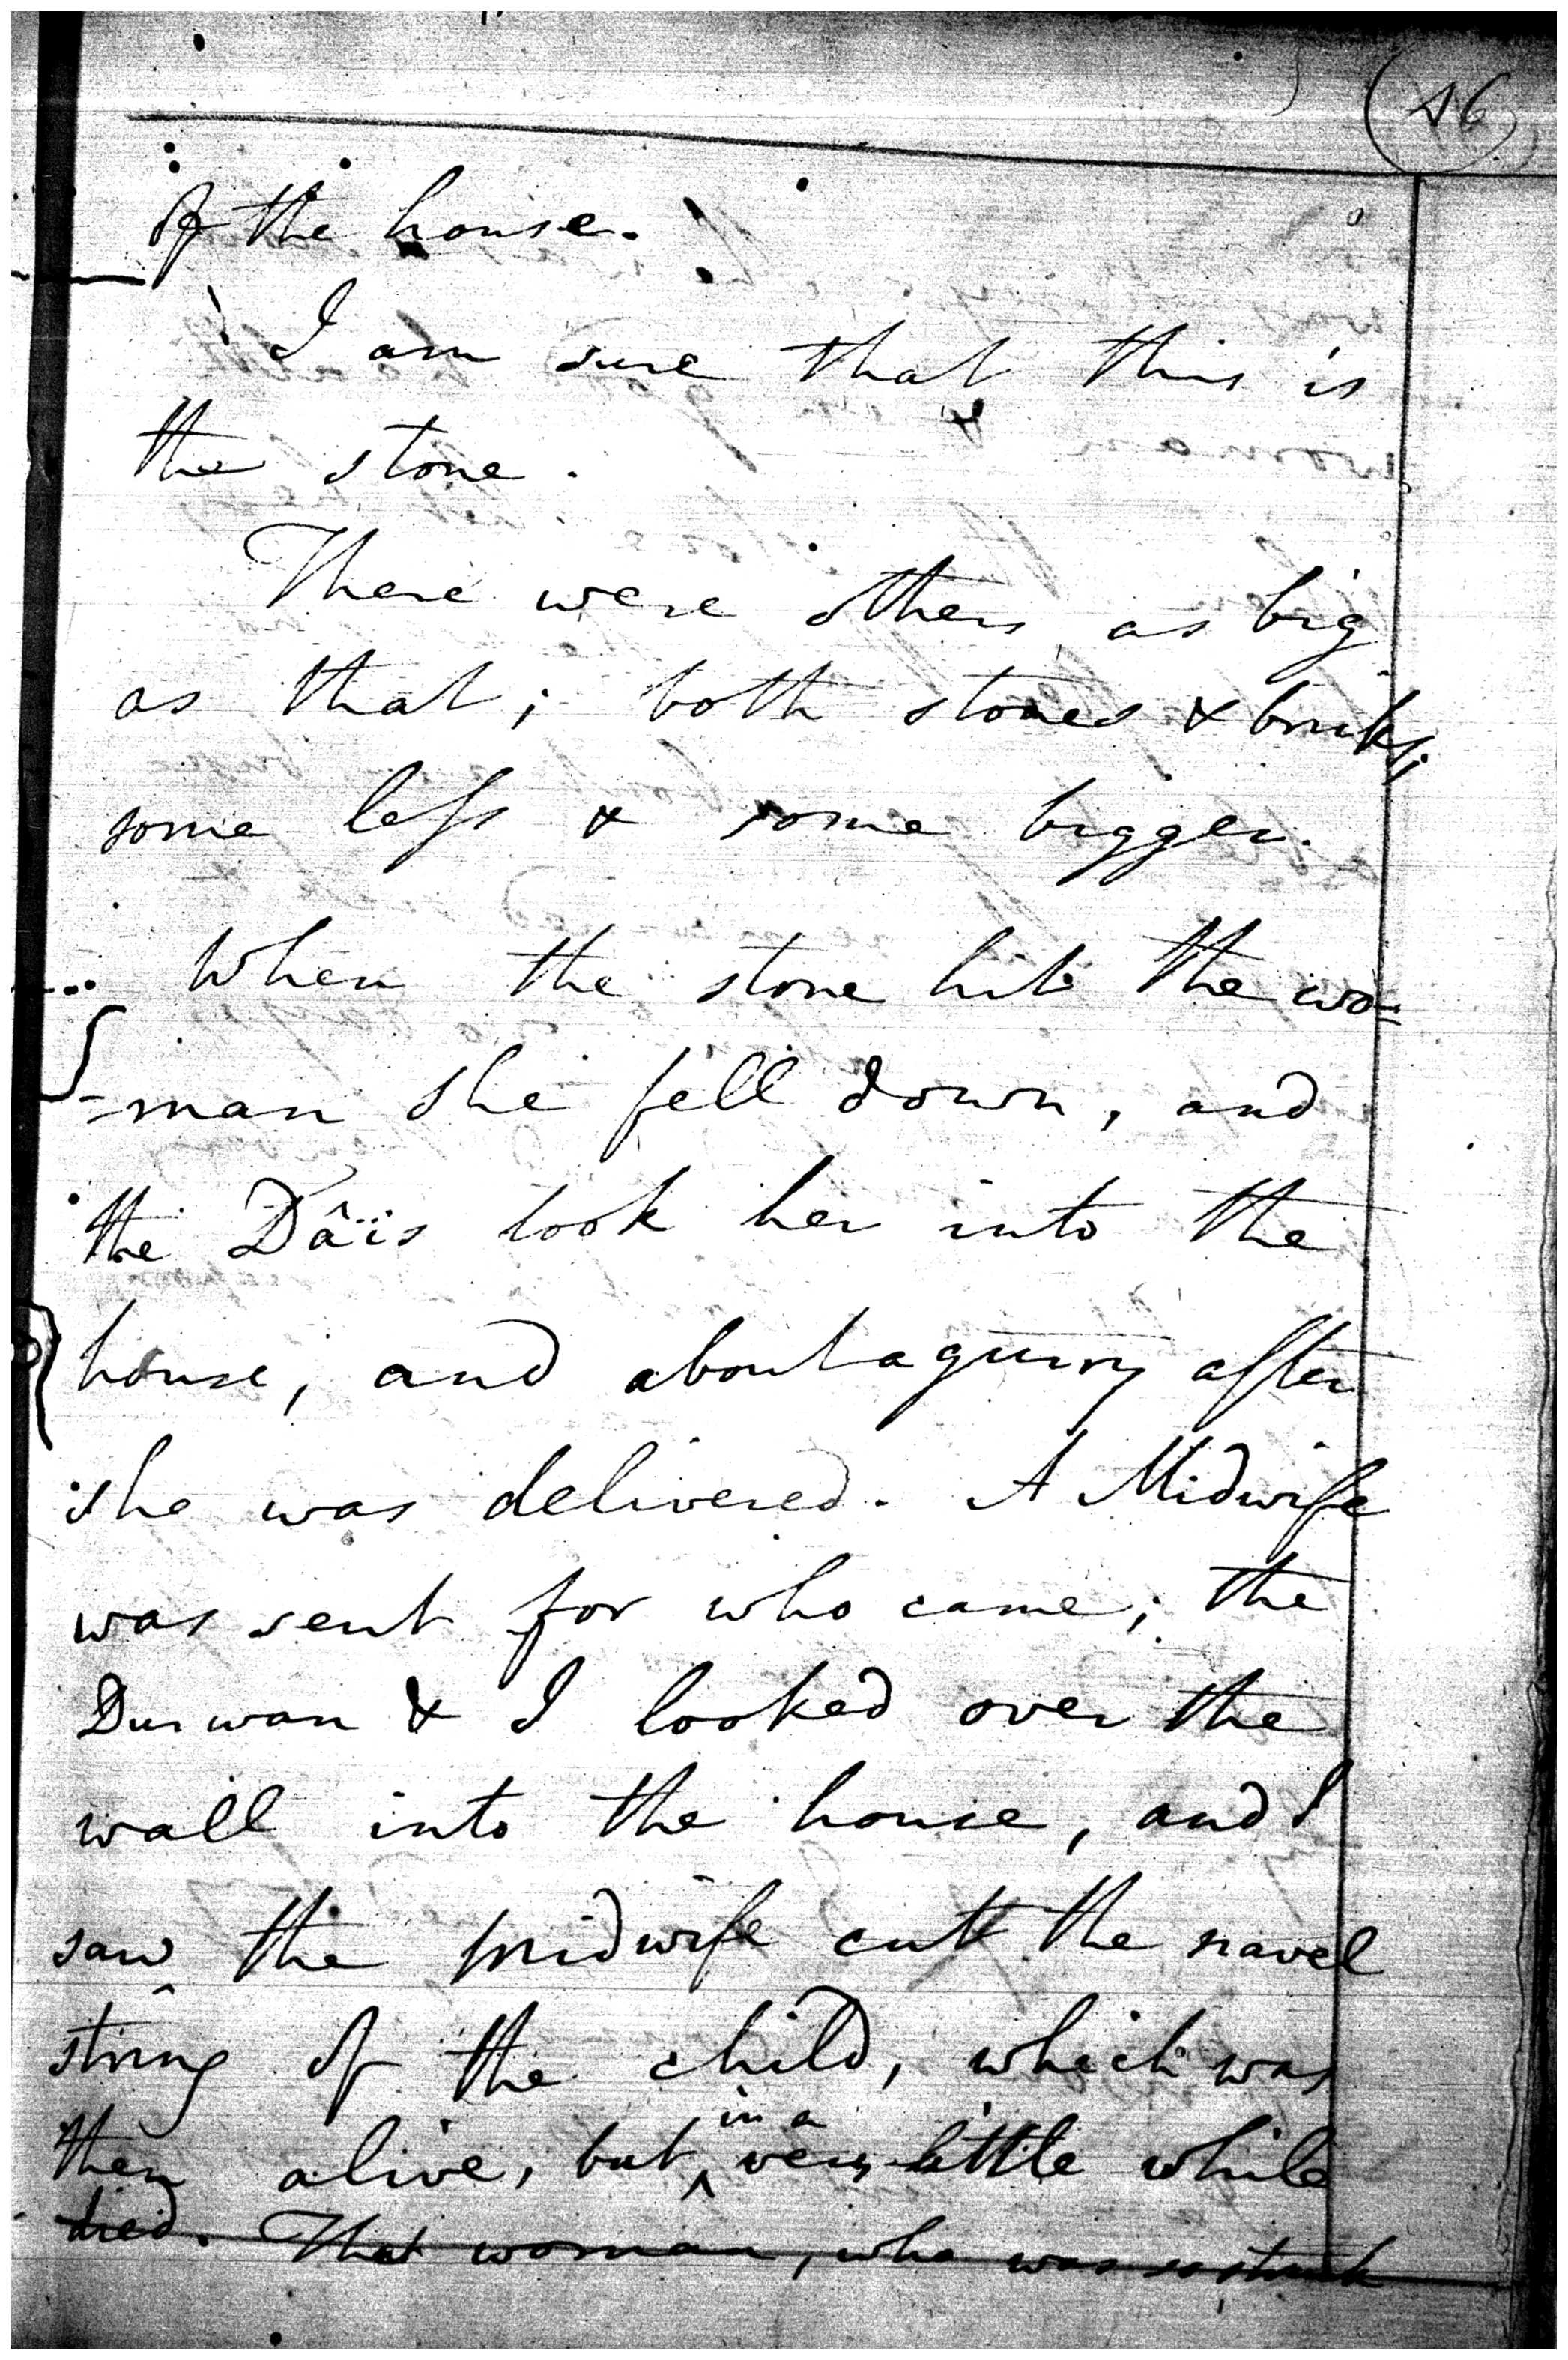 46
of the house.
I am sure that this is
the stone.
There were others as big
as that; both stones & bricks;
some less & some bigger.
When the stone hit the wo=
-man she fell down, and
the Dâïs took her into the
house, and about a gurry after
she was delivered. A Midwife
was sent for who came; the
Durwan & I looked over the
wall into the house, and I
saw the midwife cut the navel
string of the child, which was
then alive, but in a very little while
died. That woman, who was so struck